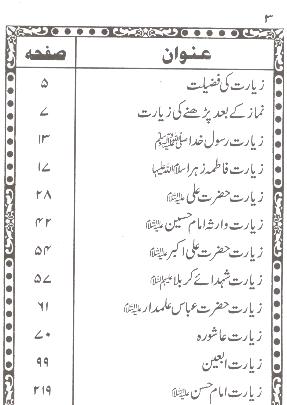 ۳
عنوان صفحہ
زیارت کی فضیلت ۵
نماز کے بعد پڑھنے کی زیارت ۷
زیارت رسول خدا ﷺ ۱۳
زیارت فاطمہ زہرا سلام اللہ علیہا ۱۷
زیارت حضرت علی علیہ السلام ۲۸
زیارت وارثہ امام حسین علیہ السلام ۴۲
زیارت حضرت علی اکبر علیہ السلام ۵۴
زیارت شہدائے کربلا علیہم السلام ۵۷
زیارت حضرت عباس علمدار علیہ السلام ۶۱
زیارت عاشورہ ۷۰
زیارت اربعین ۹۹
زیارت امام حسن علیہ السلام ۲۱۹